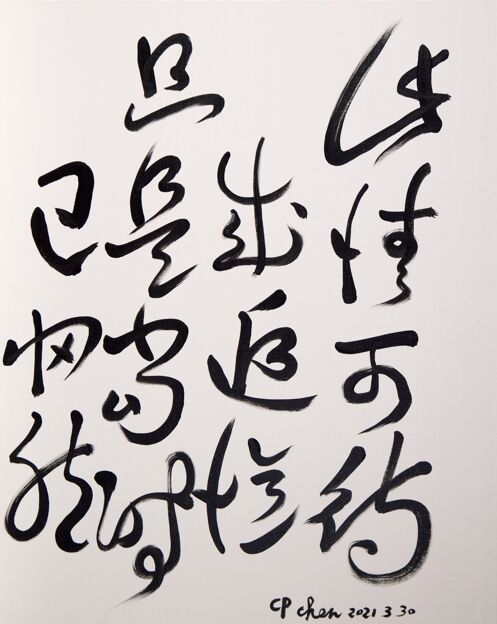 此情可待
成追憶
只是當時
已惘然
CP chen 2021 3 30